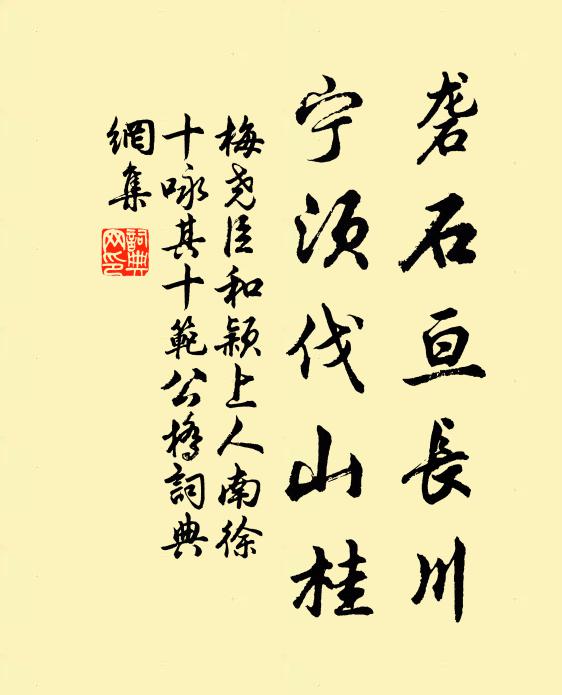 砻石亘長川
宁须伐山桂
梅尧臣和颖上人南徐
十咏其十範公橋詞典
網集
詞典網印